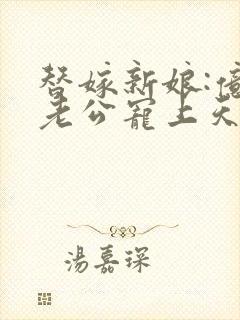 替嫁新娘:億
老公寵上天
湯嘉琛